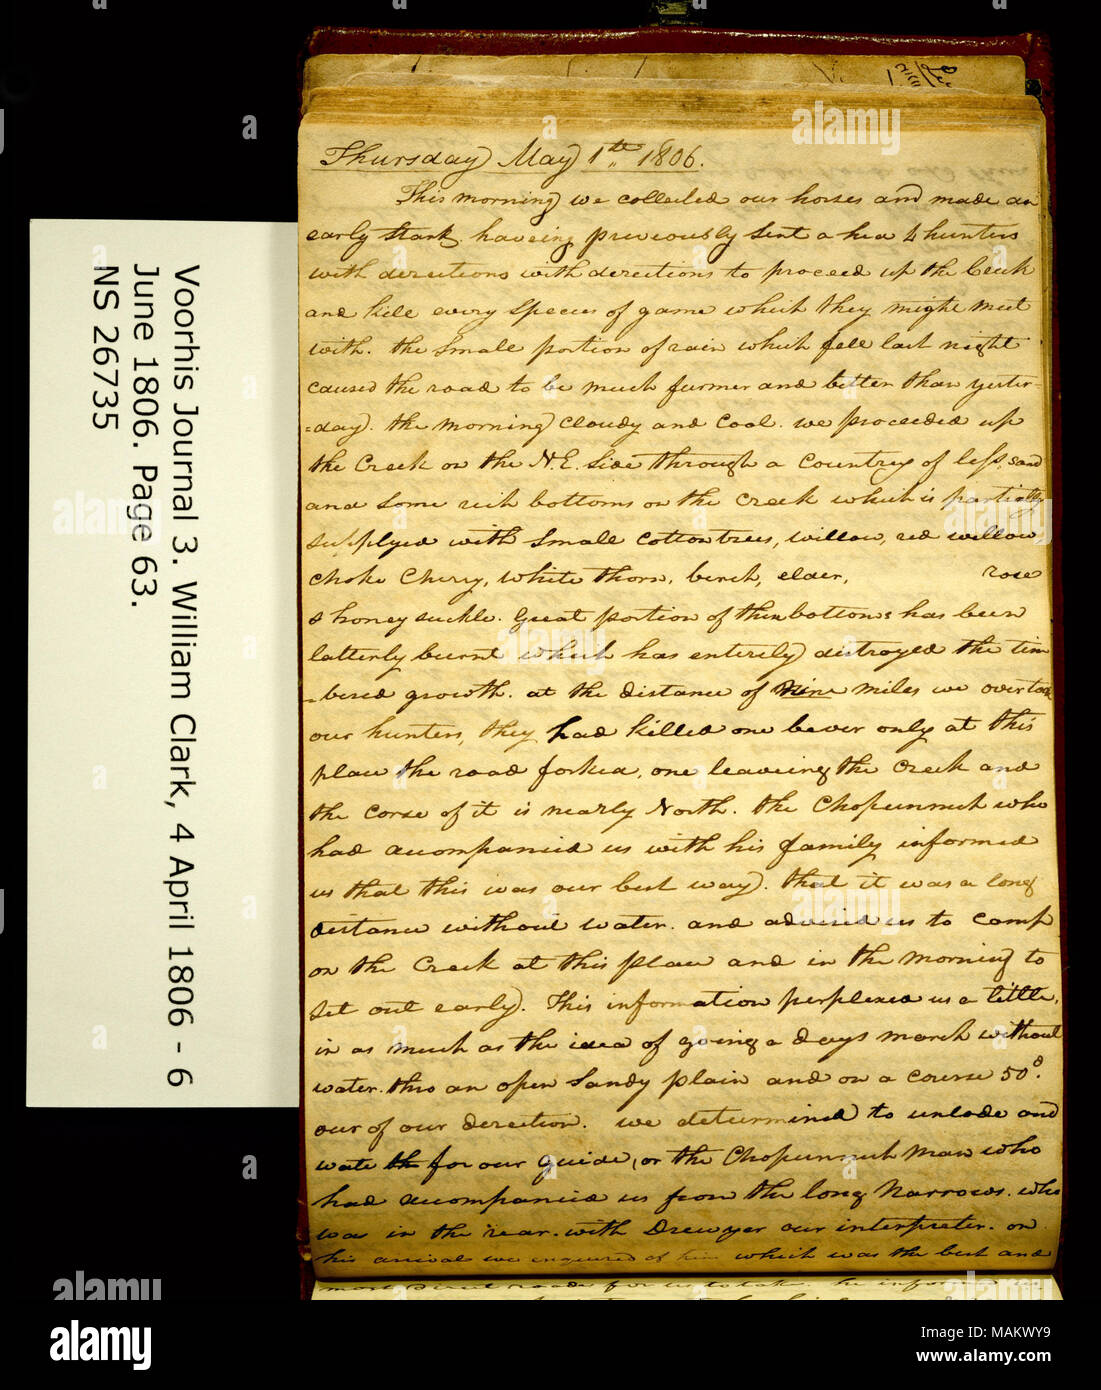 Thursday May 1st 1806.
This morning we collected our horses and made an
early start, haveing preveously sent a hed 4 hunters
with derections with derections to proceed up the Creek
and kill every species of game which they might meet
with. the small portion of rain which fell last night
caused the road to be much furmer and better than yester-
=day. the morning cloudy and cool. we proceeded up
the Creek on the N.E. side through a countrey of less sand
and some rich bottoms on the Creek which is partially
supplyed with small cotton trees, willow, red willow,
choke Cherry, white thorn, birch, elder, rose
& honey suckle. Great portion of these bottoms has been
latterly burnt which has entirely distroyed the tim
=bered growth. at the distance of nine miles we overtook
our hunters, they had killed one bever only at this
place the road forked, one leaveing the Creek and
the corse of it is nearly North. the Chopunnish who
had accompanied us with his family informed
us that this was our best way. that it was a long
distance without water. and advised us to camp
on the Creek at this place and in the morning to
set out early. This information perplexed us a little,
in as much as the idea of going a days march without
water. thro an open sandy plain and on a course 50°.
our of our derection. we determined to unlode and
wate th for our guide, or the Chopunnish man who
had accompanied us from the long Narrows. who
was in the rear. with Drewyer our interpreter. on
his arrival we enquired of him which was the best and
most direct roade for us to take. he informed
Voorhis Journal 3. William Clark, 4 April 1806 - 6
June 1806. Page 63.
NS 26735
alamy
a
Image ID: MAKWY9
www.alamy.com